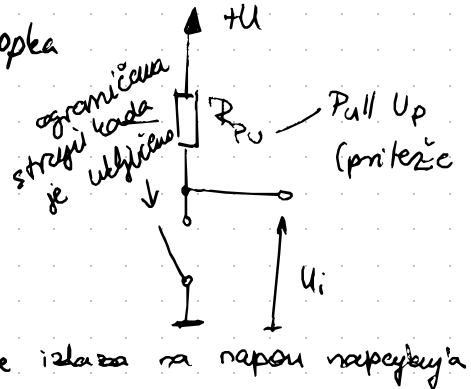 opka
+U
ograničena
struja kada
je uključeno
R_PU
Pull Up
(priteže
U_i
e izlaza na napon napajanja